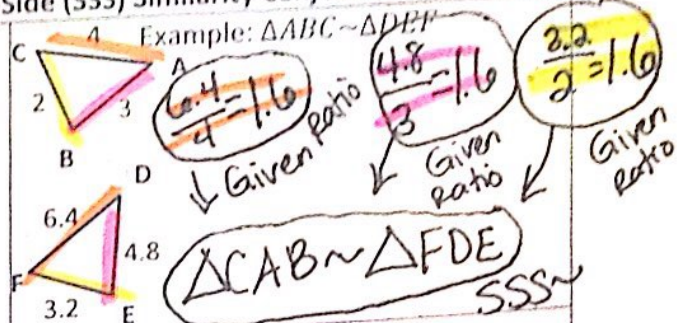 Side (SSS) Similarity
Example: ΔABC~ΔDEF
C 4 A
2 3
B
6.4/4=1.6
Given Ratio
4.8/3=1.6
Given Ratio
3.2/2=1.6
Given Ratio
D
6.4 4.8
F
3.2 E
ΔCAB~ΔFDE
SSS~